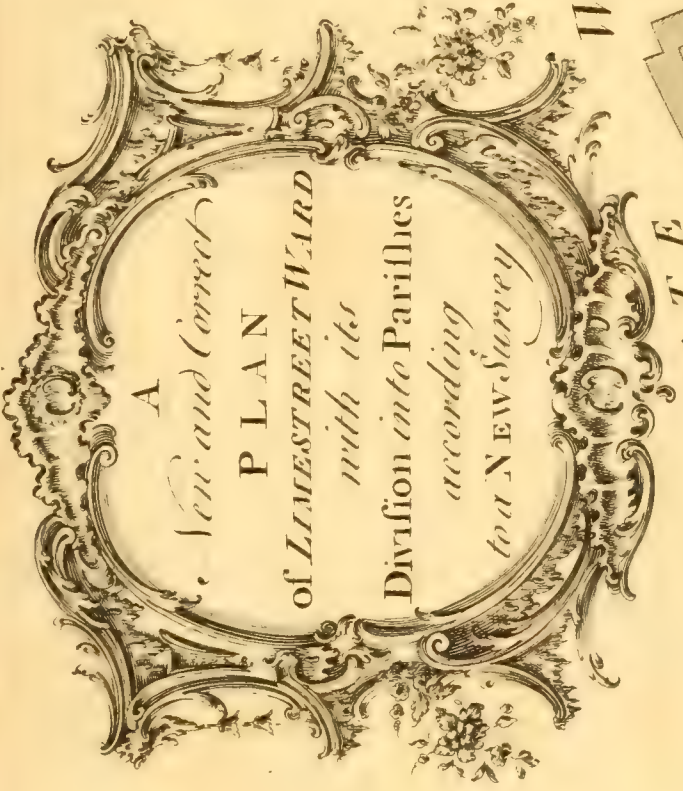 A
New and Correct
PLAN
of LIMESTREET WARD
with its
Diviſion into Pariſhes
according
to a NEW Survey
TE